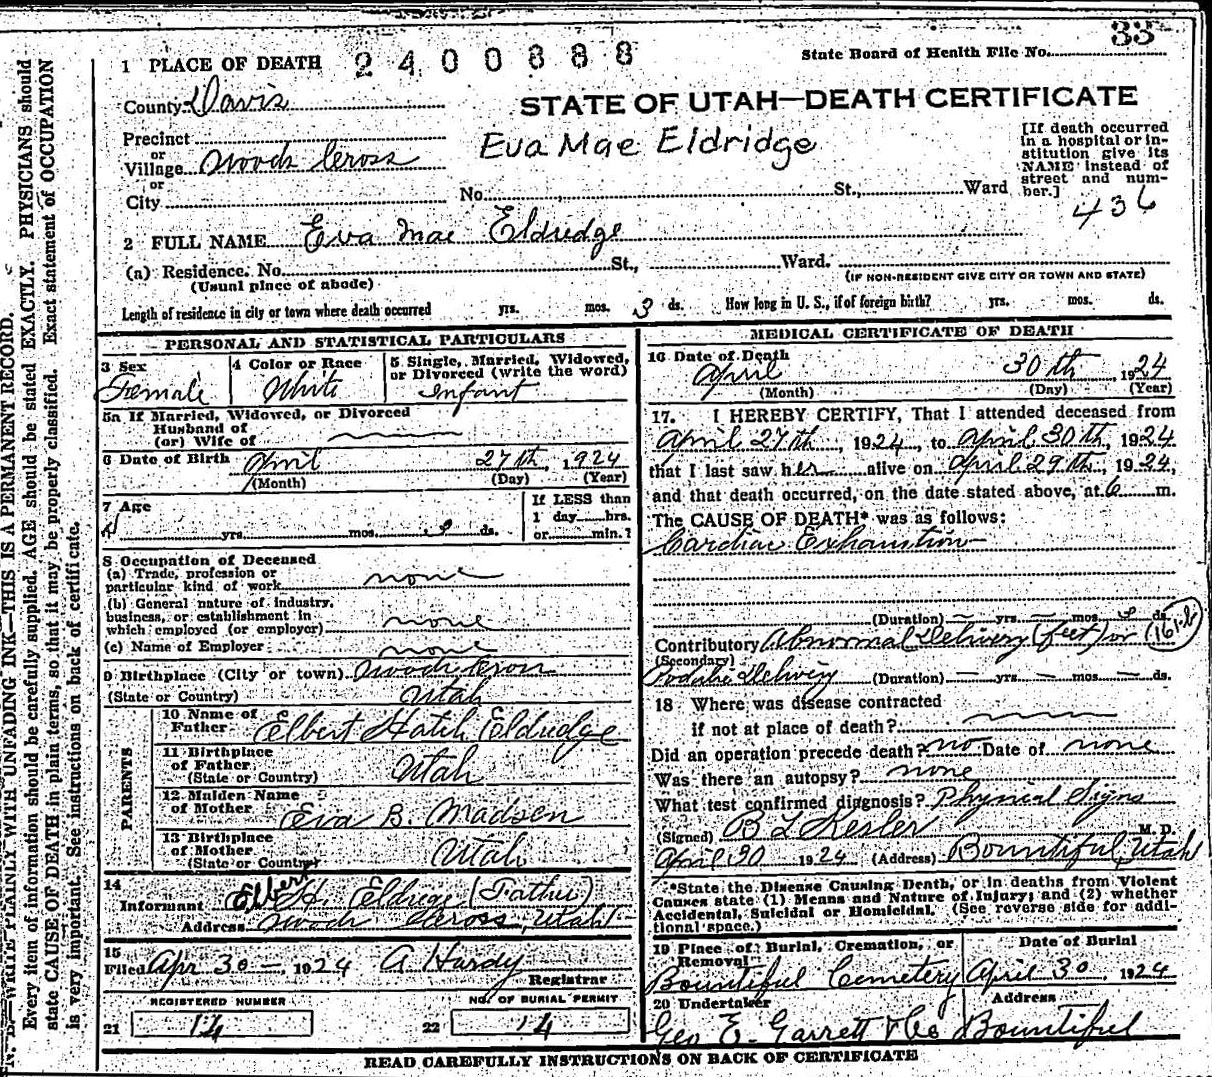 33
State Board of Health File No.
1 PLACE OF DEATH 2400888
County Davis
STATE OF UTAH—DEATH CERTIFICATE
Precinct
or
Village Woods Cross
or
City
Eva Mae Eldridge
[If death occurred
in a hospital or in-
stitution give its
NAME instead of
street and num-
ber.]
No. St., Ward
436
2 FULL NAME Eva Mae Eldredge
(a) Residence. No. St., Ward.
(Usual place of abode)
(IF NON-RESIDENT GIVE CITY OR TOWN AND STATE)
Length of residence in city or town where death occurred yrs. mos. 3 ds. How long in U. S., if of foreign birth? yrs. mos. ds.
PERSONAL AND STATISTICAL PARTICULARS
3 Sex
Female
4 Color or Race
White
5 Single, Married, Widowed,
or Divorced (write the word)
Infant
5a If Married, Widowed, or Divorced
Husband of
(or) Wife of
6 Date of Birth April 27th, 1924
(Month) (Day) (Year)
7 Age
yrs. mos. ds.
If LESS than
1 day hrs.
or min.?
8 Occupation of Deceased
(a) Trade, profession or
particular kind of work none
(b) General nature of industry,
business, or establishment in
which employed (or employer) none
(c) Name of Employer none
9 Birthplace (City or town) Woods Cross
(State or Country) Utah
PARENTS
10 Name of
Father Elbert Hatch Eldredge
11 Birthplace
of Father
(State or Country) Utah
12 Maiden Name
of Mother Eva B. Madsen
13 Birthplace
of Mother
(State or Country) Utah
14
Informant Elbert H. Eldredge (Father)
Address Woods Cross, Utah
15
Filed Apr 30, 1924 A Hardy
Registrar
REGISTERED NUMBER
21 14
NO. OF BURIAL PERMIT
22 14
MEDICAL CERTIFICATE OF DEATH
16 Date of Death
April 30th, 1924
(Month) (Day) (Year)
17. I HEREBY CERTIFY, That I attended deceased from
April 27th, 1924, to April 30th, 1924
that I last saw her alive on April 29th, 1924,
and that death occurred, on the date stated above, at 6 m.
The CAUSE OF DEATH* was as follows:
Cardiac Exhaustion
(Duration) yrs. mos. ds.
Contributory Abnormal Delivery (feet) or
(Secondary)
Podalic Delivery (Duration) yrs. mos. ds.
18 Where was disease contracted
if not at place of death?
Did an operation precede death? no Date of none
Was there an autopsy? none
What test confirmed diagnosis? Physical Signs
(Signed) B L Kesler M. D.
April 30 1924 (Address) Bountiful, Utah
*State the Disease Causing Death, or in deaths from Violent
Causes state (1) Means and Nature of Injury; and (2) whether
Accidental, Suicidal or Homicidal. (See reverse side for addi-
tional space.)
19 Place of Burial, Cremation, or
Removal
Bountiful Cemetery
Date of Burial
April 30, 1924
20 Undertaker
Geo E. Garrett & Co
Address
Bountiful
READ CAREFULLY INSTRUCTIONS ON BACK OF CERTIFICATE
WRITE PLAINLY WITH UNFADING INK—THIS IS A PERMANENT RECORD.
Every item of information should be carefully supplied. AGE should be stated EXACTLY. PHYSICIANS should
state CAUSE OF DEATH in plain terms, so that it may be properly classified. Exact statement of OCCUPATION
is very important. See instructions on back of certificate.